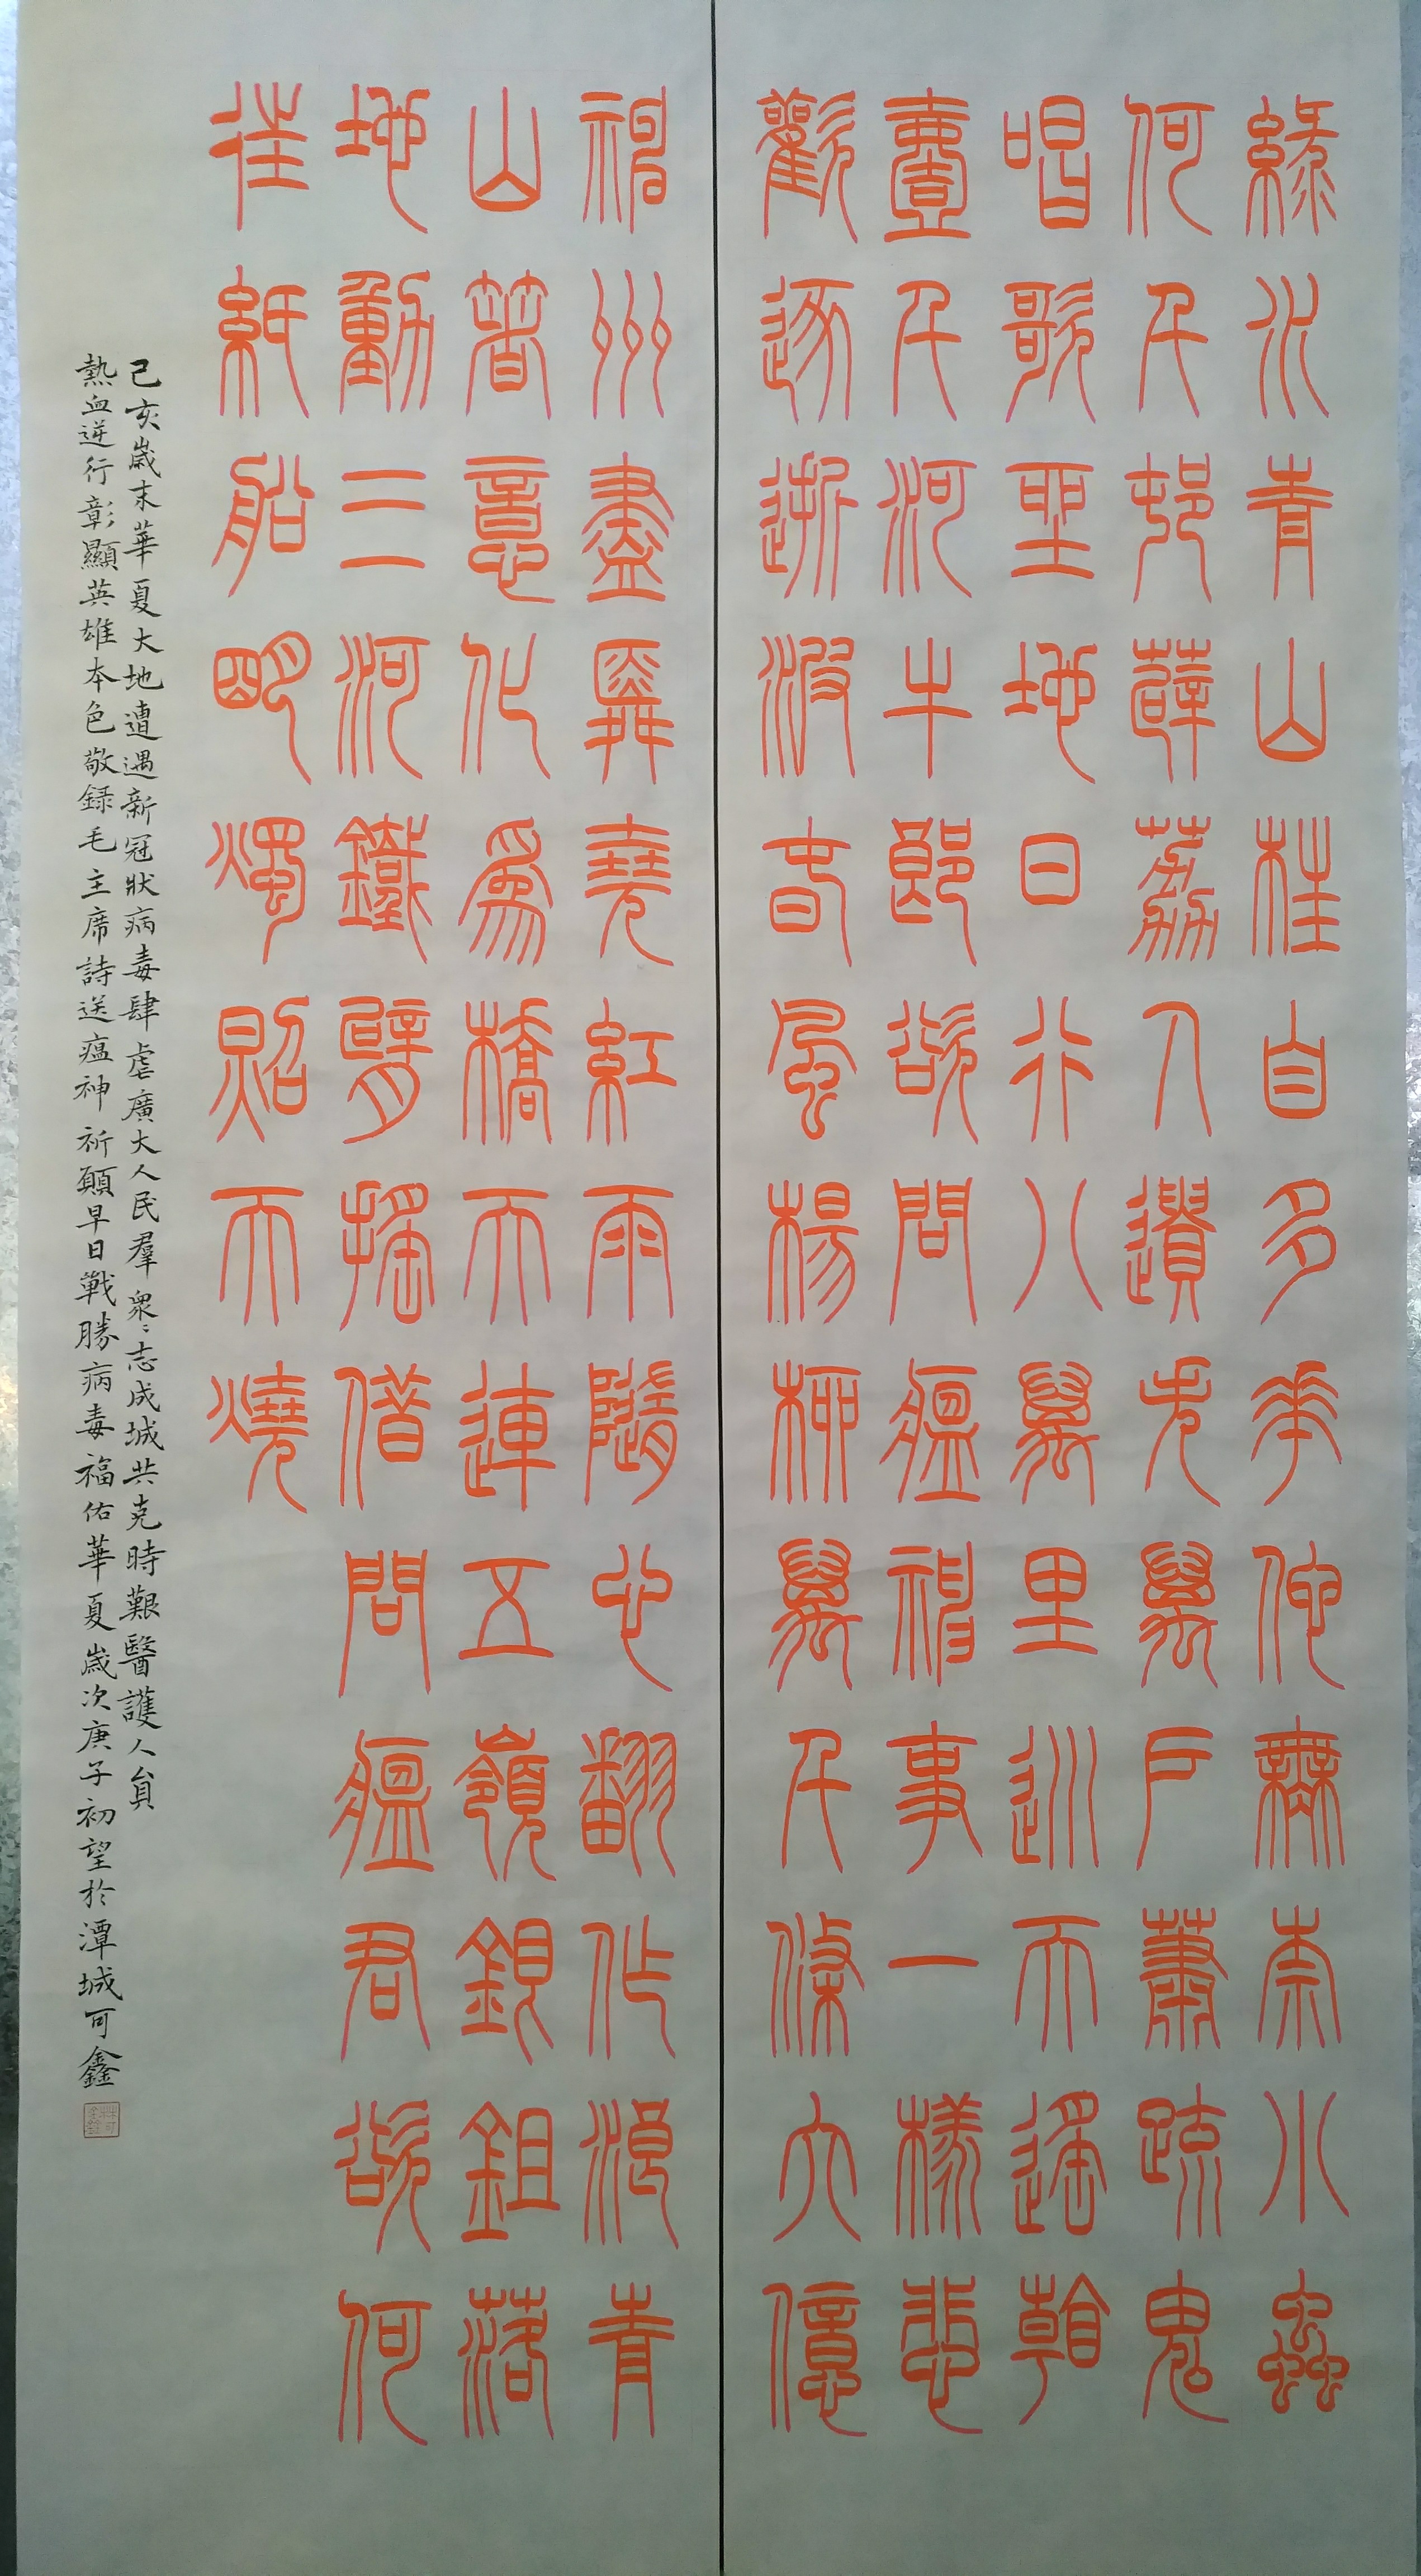 綠水青山枉自多華佗無奈小蟲
何千村薜荔人遺矢萬戶蕭疏鬼
唱歌坐地日行八萬里巡天遙看
壹千河牛郎欲問瘟神事一樣悲
歡逐逝波春風楊柳萬千條六億
神州盡舜堯紅雨隨心翻作浪青
山著意化為橋天連五嶺銀鉏落
地動三河鐵臂搖借問瘟君欲何
往紙船明燭照天燒
己亥歲末華夏大地遭遇新冠狀病毒肆虐廣大人民羣衆〻志成城共克時艱醫護人員
熱血逆行彰顯英雄本色敬録毛主席詩送瘟神祈願早日戰勝病毒福佑華夏歲次庚子初望於潭城可鑫